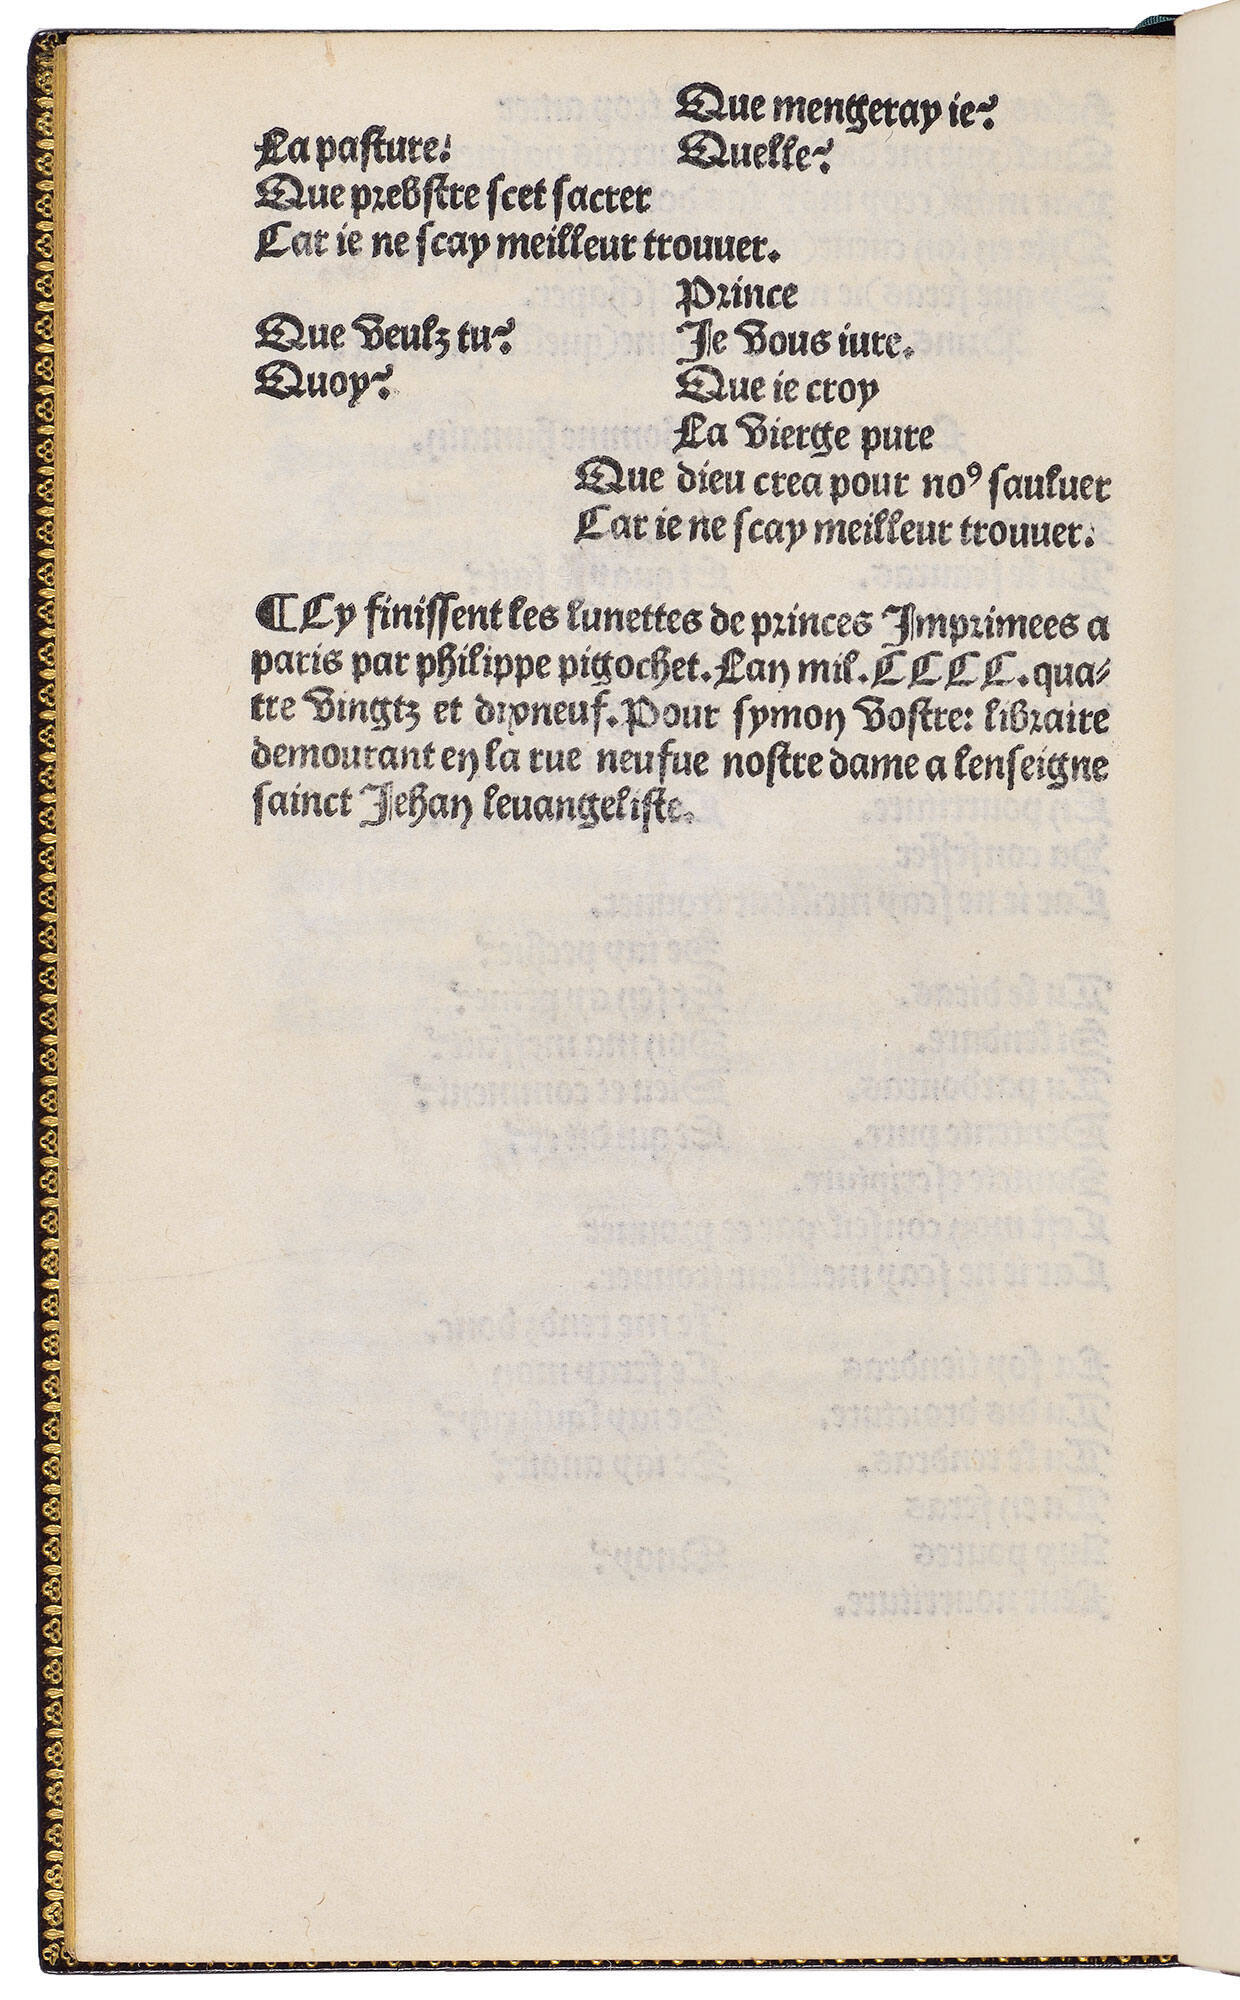 Que mengeray ie?
La pasture. Quelle?
Que prebstre scet sacrer
Car ie ne scay meilleur trouuer.
Prince
Que veulz tu? Je vous iure.
Quoy? Que ie croy
La vierge pure
Que dieu crea pour noꝰ sauluer
Car ie ne scay meilleur trouuer.
¶Cy finissent les lunettes de princes Imprimees a
paris par philippe pigochet. Lan mil. CCCC. qua-
tre vingtz et dixneuf. Pour symon vostre: libraire
demourant en la rue neufue nostre dame a lenseigne
sainct Jehan leuangeliste.